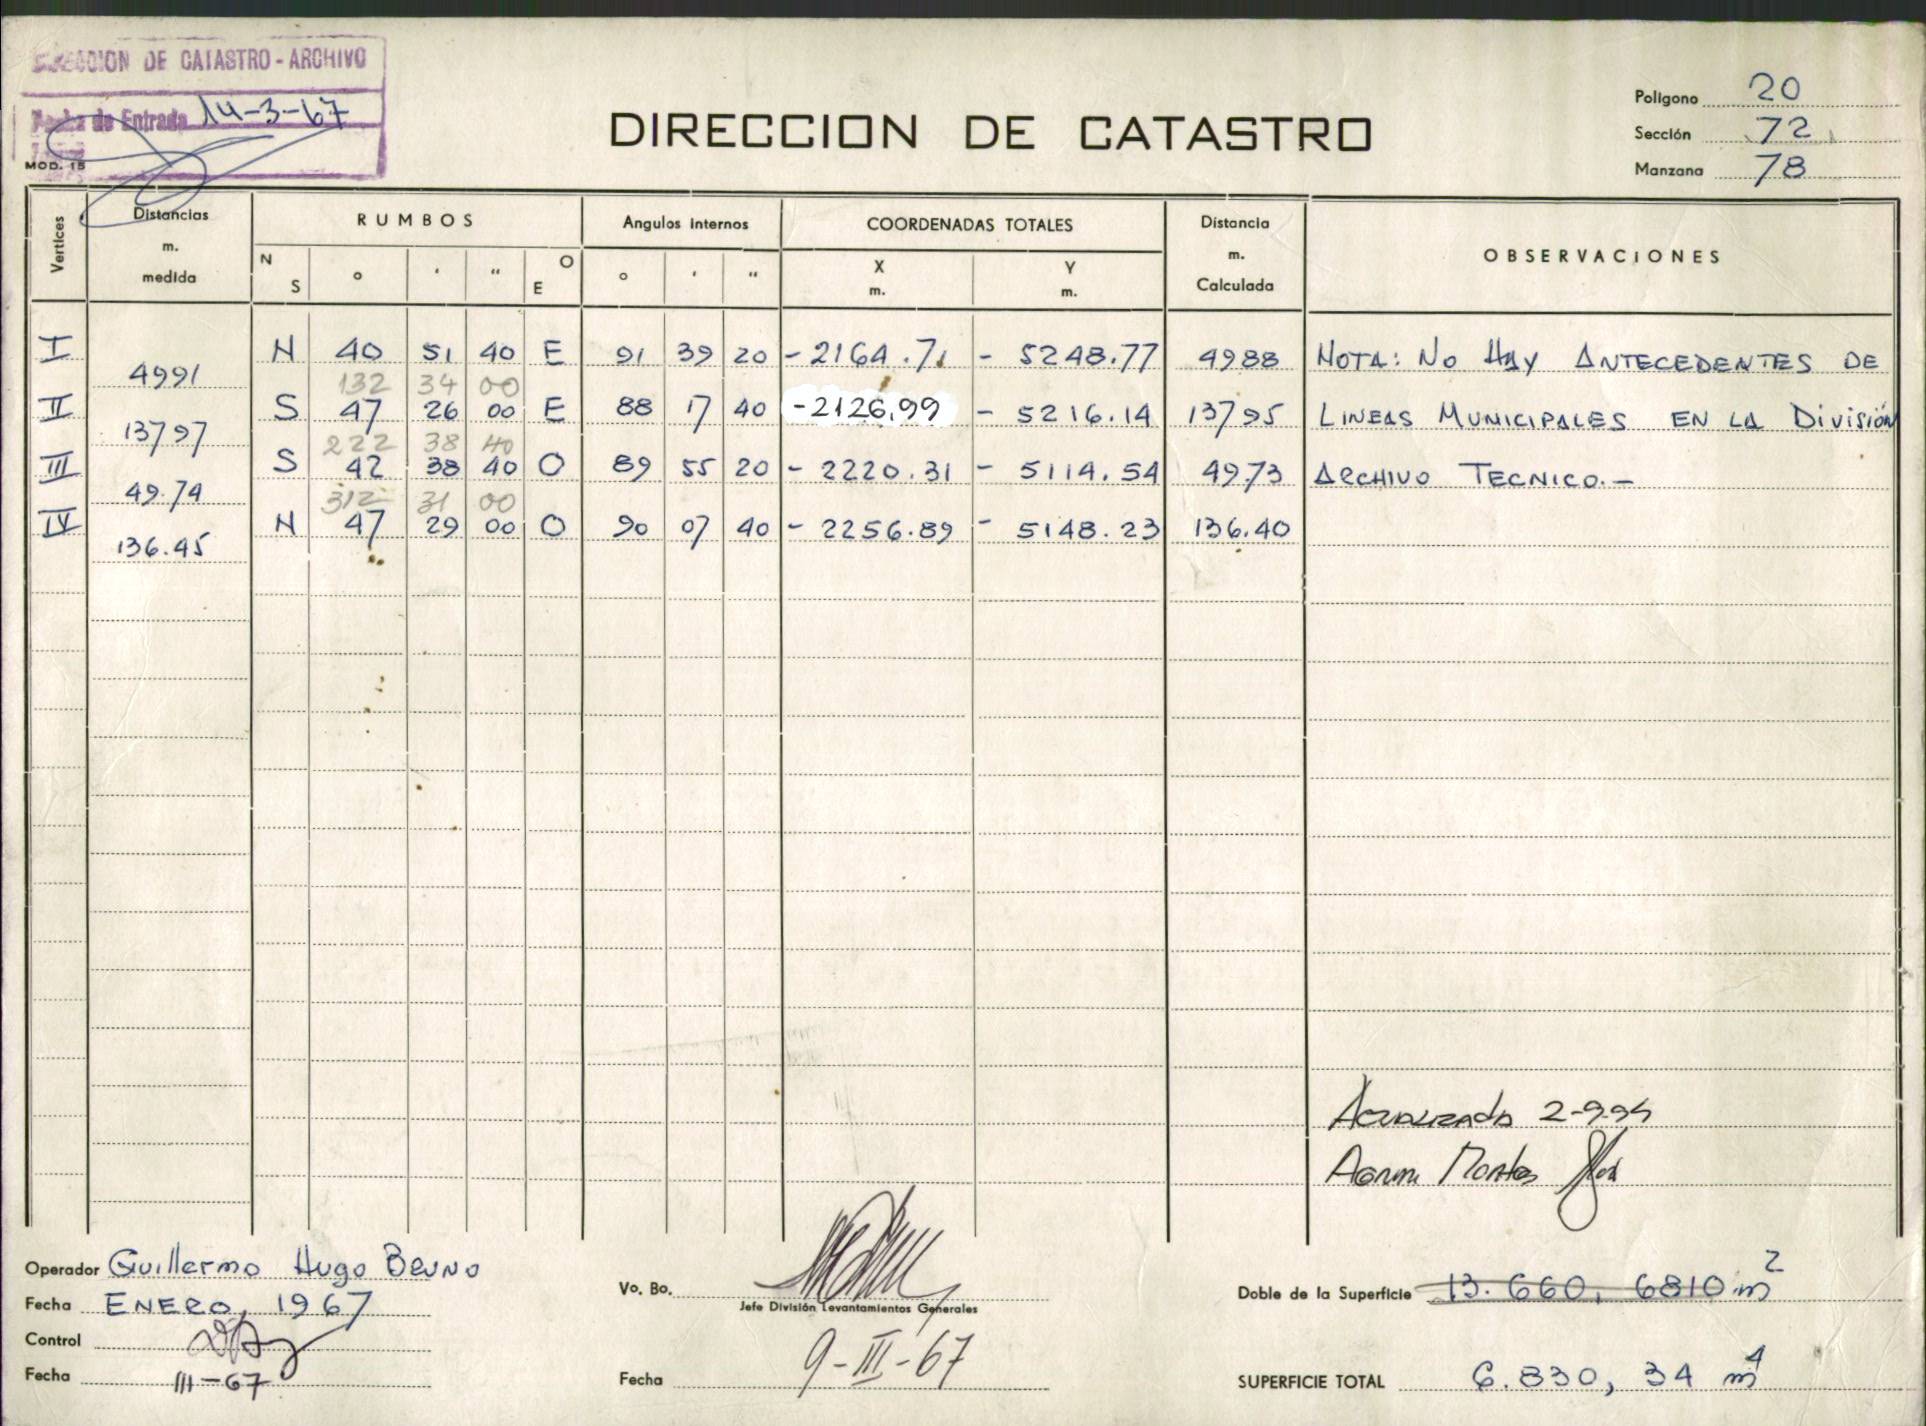 DIRECCION DE CATASTRO - ARCHIVO
Fecha de Entrada 14-3-67
MOD. 15
DIRECCION DE CATASTRO
Poligono 20
Sección 72
Manzana 78
Vertices
Distancias m. medida
RUMBOS
N S ° ' " O E
Angulos Internos
° ' "
COORDENADAS TOTALES
X m. Y m.
Distancia m. Calculada
OBSERVACIONES
I N 40 51 40 E 91 39 20 - 2164.71 - 5248.77 4988 NOTA: No Hay ANTECEDENTES DE
4991 132 34 00
II S 47 26 00 E 88 17 40 -2126,99 - 5216.14 13795 LINEAS MUNICIPALES EN LA División
13797 222 38 40
III S 42 38 40 O 89 55 20 - 2220.31 - 5114.54 49.73 ARCHIVO TECNICO.-
49.74 312 31 00
IV N 47 29 00 O 90 07 40 - 2256.89 - 5148.23 136.40
136.45
Actualizado 2-9-94
Agrim Montes
Operador Guillermo Hugo Bruno
Fecha ENERO, 1967
Control
Fecha III-67
Vo. Bo.
Jefe División Levantamientos Generales
Fecha 9-III-67
Doble de la Superficie 13.660, 6810 m2
SUPERFICIE TOTAL 6.830, 34 m4